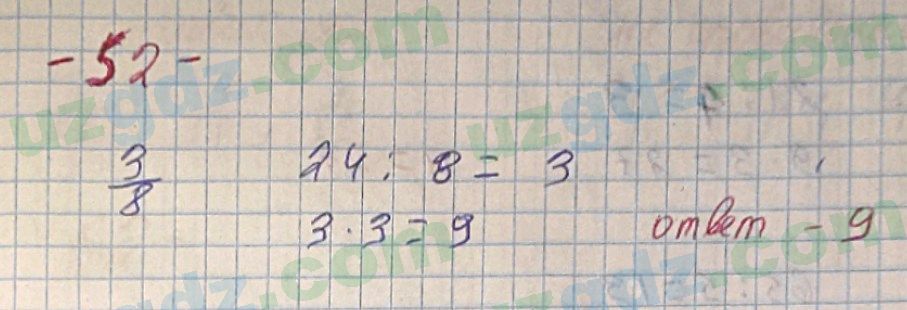 -52-
3/8 24 : 8 = 3
3 · 3 = 9 ответ - 9
uzgdz.com
uzgdz.com
uzgdz.com
uzgdz.com